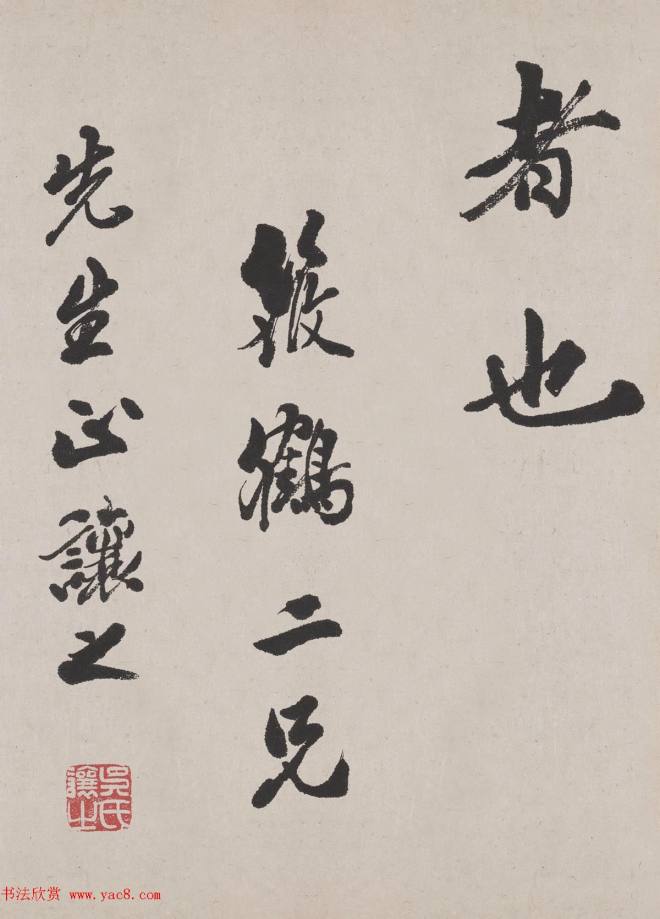 者也
鶴二兄
先生正讓之
吳氏讓之
书法欣赏 www.yac8.com